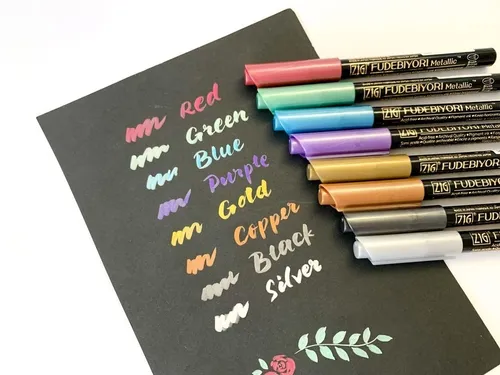 Red
Green
Blue
Purple
Gold
Copper
Black
Silver
ZIG FUDEBIYORI Metallic
ZIG FUDEBIYORI Metallic
ZIG FUDEBIYORI Metallic
ZIG FUDEBIYORI Metallic
ZIG FUDEBIYORI
ZIG FUDEBIYO
ZIG FUDEB
ZIG FUD